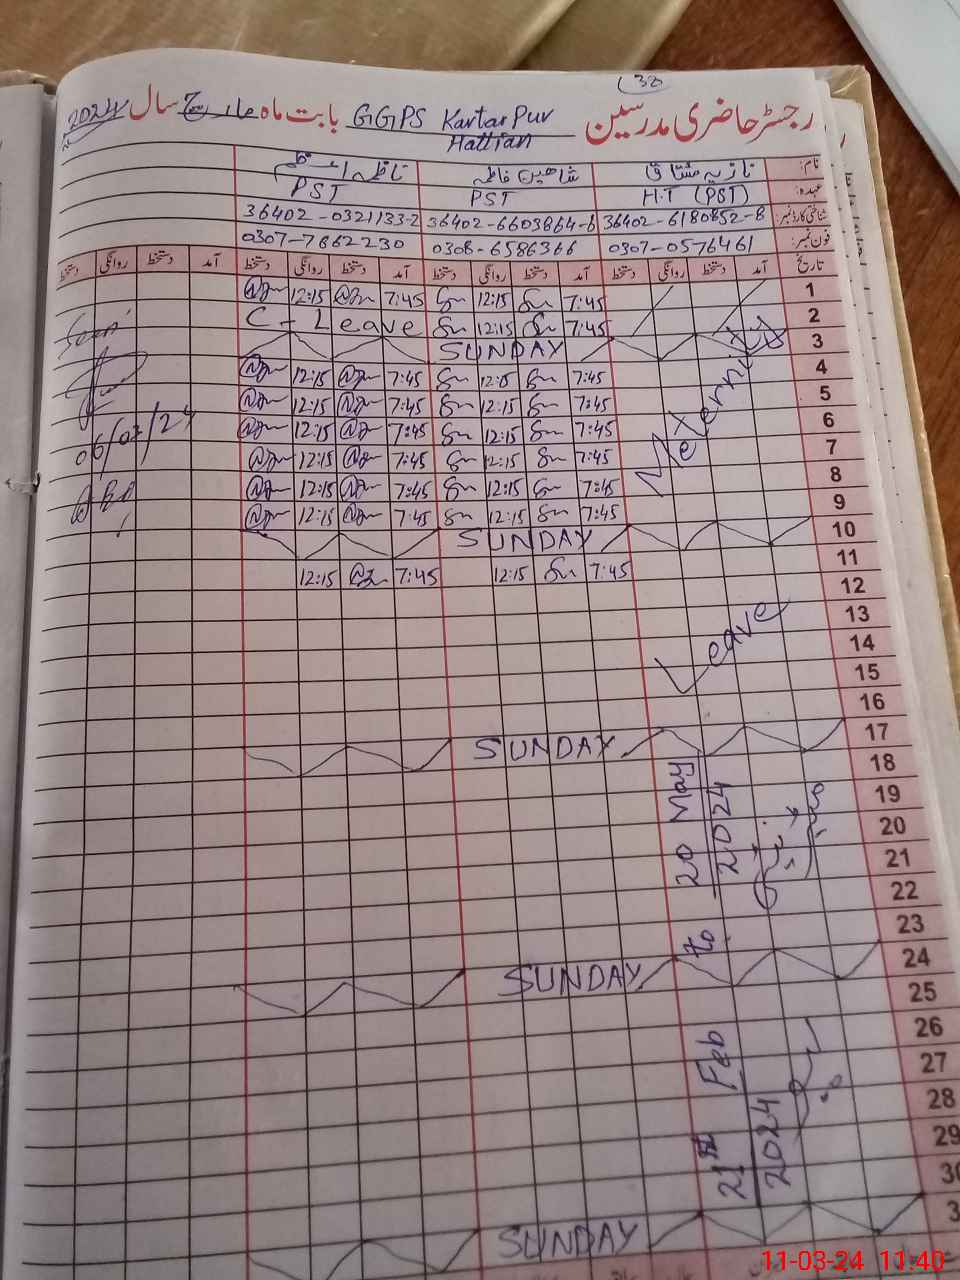 38
رجسٹر حاضری مدرسین GGPS Kartar Pur بابت ماہ مارچ سال 2024
Hattian
نام: نازیہ مشتاق شاھین فاطمہ
عہدہ: H.T (PST) PST PST
شناختی کارڈ نمبر: 36402-6180852-8 36402-6603864-6 36402-0321133-2
فون نمبر: 0307-0576461 0308-6586366 0307-7862230
تاریخ آمد دستخط روانگی دستخط آمد دستخط روانگی دستخط آمد دستخط روانگی دستخط آمد دستخط روانگی دستخط
1 7:45 12:15 7:45 12:15
2 7:45 12:15 C-Leave
3 SUNDAY
4 7:45 12:15 7:45 12:15
5 7:45 12:15 7:45 12:15
6 7:45 12:15 7:45 12:15
7 7:45 12:15 7:45 12:15
8 7:45 12:15 7:45 12:15
9 7:45 12:15 7:45 12:15
10 SUNDAY
11 7:45 12:15 7:45 12:15
12
13
14
15
16
17 SUNDAY
18
19
20
21
22
23
24 SUNDAY
25
26
27
28
29
30
3
SUNDAY
Meternity
Leave
21st Feb
2024
to
20 May
2024
Seen
06/03/24
11-03-24 11:40